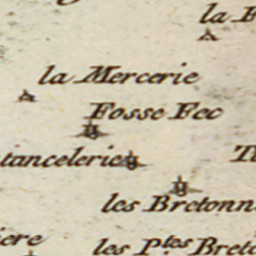 la F
la Mercerie
Fosse Fec
tancelerie
les Bretonn
iere
les P.tes Breto